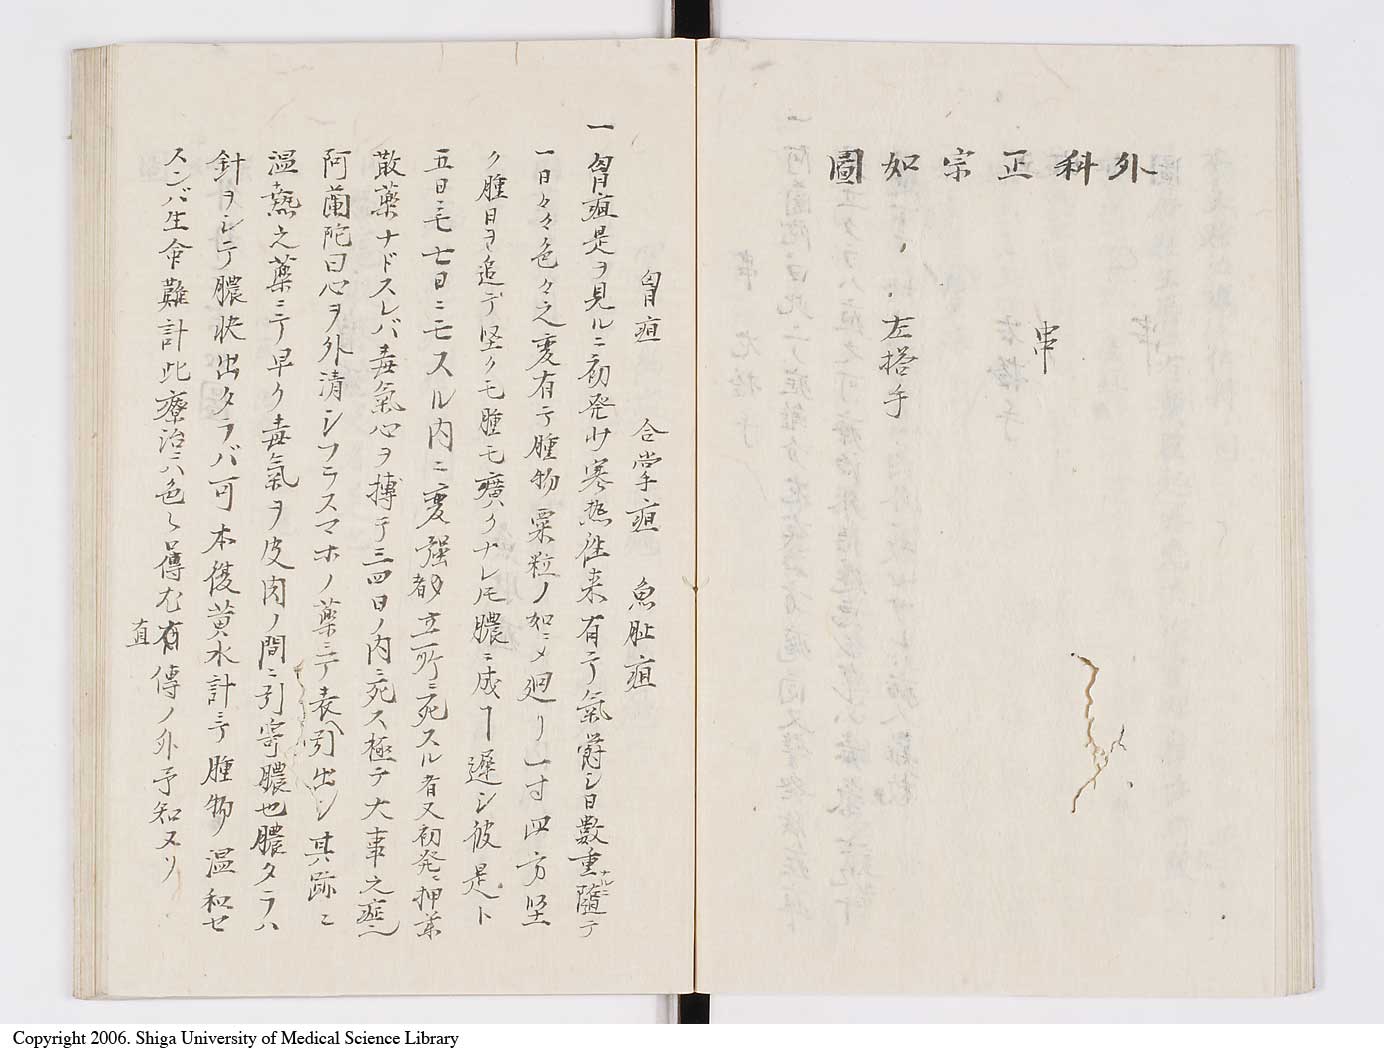 外科正宗如圖
串
左搭手
胷疽　合掌疽　魚肚疽
一胷疽是ヲ見ルニ初発ハ寒熱往来有テ氣欝シ日數重ルニ隨テ
一日々々色々之変有テ腫物粟粒ノ如ニメ廻リ一寸四方堅
ク腫日ヲ追テ堅クモ腫モ廣クナレ𪜈膿ニ成ヿ遅シ彼是ト
五日ニモ七日ニモスル内ニ変強クテ立所ニ死スル者又初発ニ押薬
散薬ナドスレバ毒氣心ヲ搏テ三四日ノ内ニ死ス極テ大事之症也
阿蘭陀曰心ヲ外清シフラスマホノ薬ニテ表ヘ引出シ其跡ニ
温熱之薬ニテ早ク毒氣ヲ皮肉ノ間ニ引寄膿也膿タラハ
針ヲシテ膿快出タラバ可本復黄水計ニテ腫物ノ温和セ
スンバ生命難計此療治ハ色々傳尤有傳ノ外予知又リ
直
Copyright 2006. Shiga University of Medical Science Library